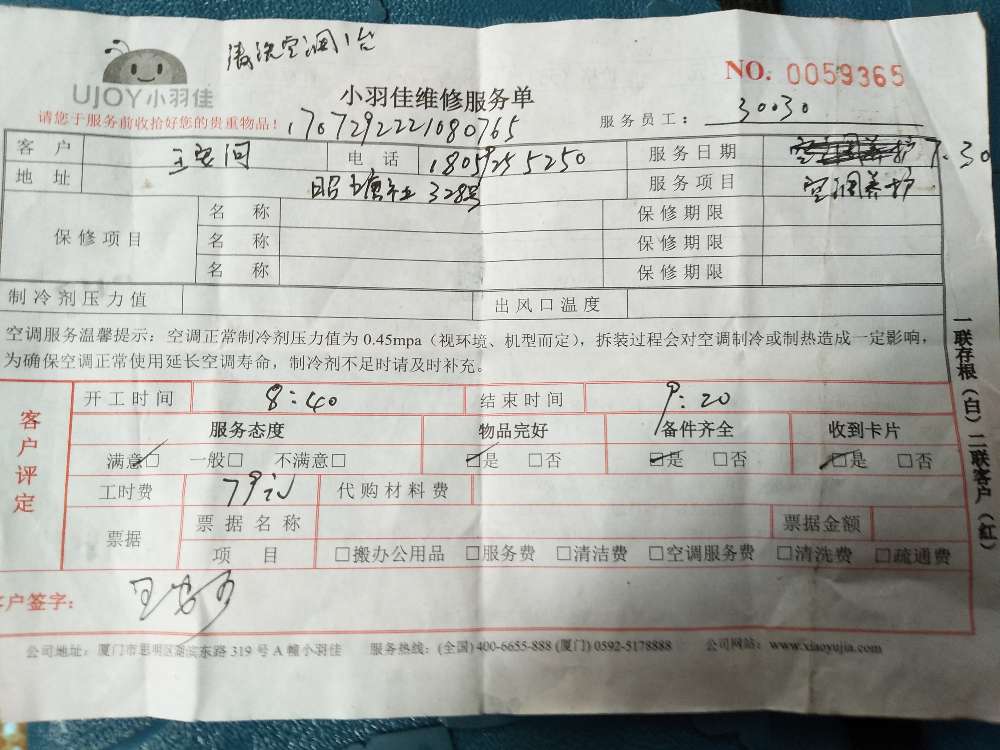 清洗空调1台
UJOY小羽佳
NO. 0059365
小羽佳维修服务单
请您于服务前收拾好您的贵重物品！
1707292221080765
服务员工： 30030
客 户 电 话 服务日期 7.30
地 址 328号 服务项目 空调养护
保修项目 名 称 保修期限
名 称 保修期限
名 称 保修期限
制冷剂压力值 出风口温度
空调服务温馨提示：空调正常制冷剂压力值为 0.45mpa（视环境、机型而定），拆装过程会对空调制冷或制热造成一定影响，
为确保空调正常使用延长空调寿命，制冷剂不足时请及时补充。
客户评定
开工时间 8:40 结束时间 9:20
服务态度 物品完好 备件齐全 收到卡片
满意□ 一般□ 不满意□ □是 □否 □是 □否 □是 □否
工时费 79 代购材料费
票据 票据名称 票据金额
项 目 □搬办公用品 □服务费 □清洁费 □空调服务费 □清洗费 □疏通费
客户签字：
公司地址：厦门市思明区湖滨东路 319 号 A 幢小羽佳 服务热线：(全国) 400-6655-888 (厦门) 0592-5178888 公司网站：www.xiaoyujia.com
一联存根（白）二联客户（红）